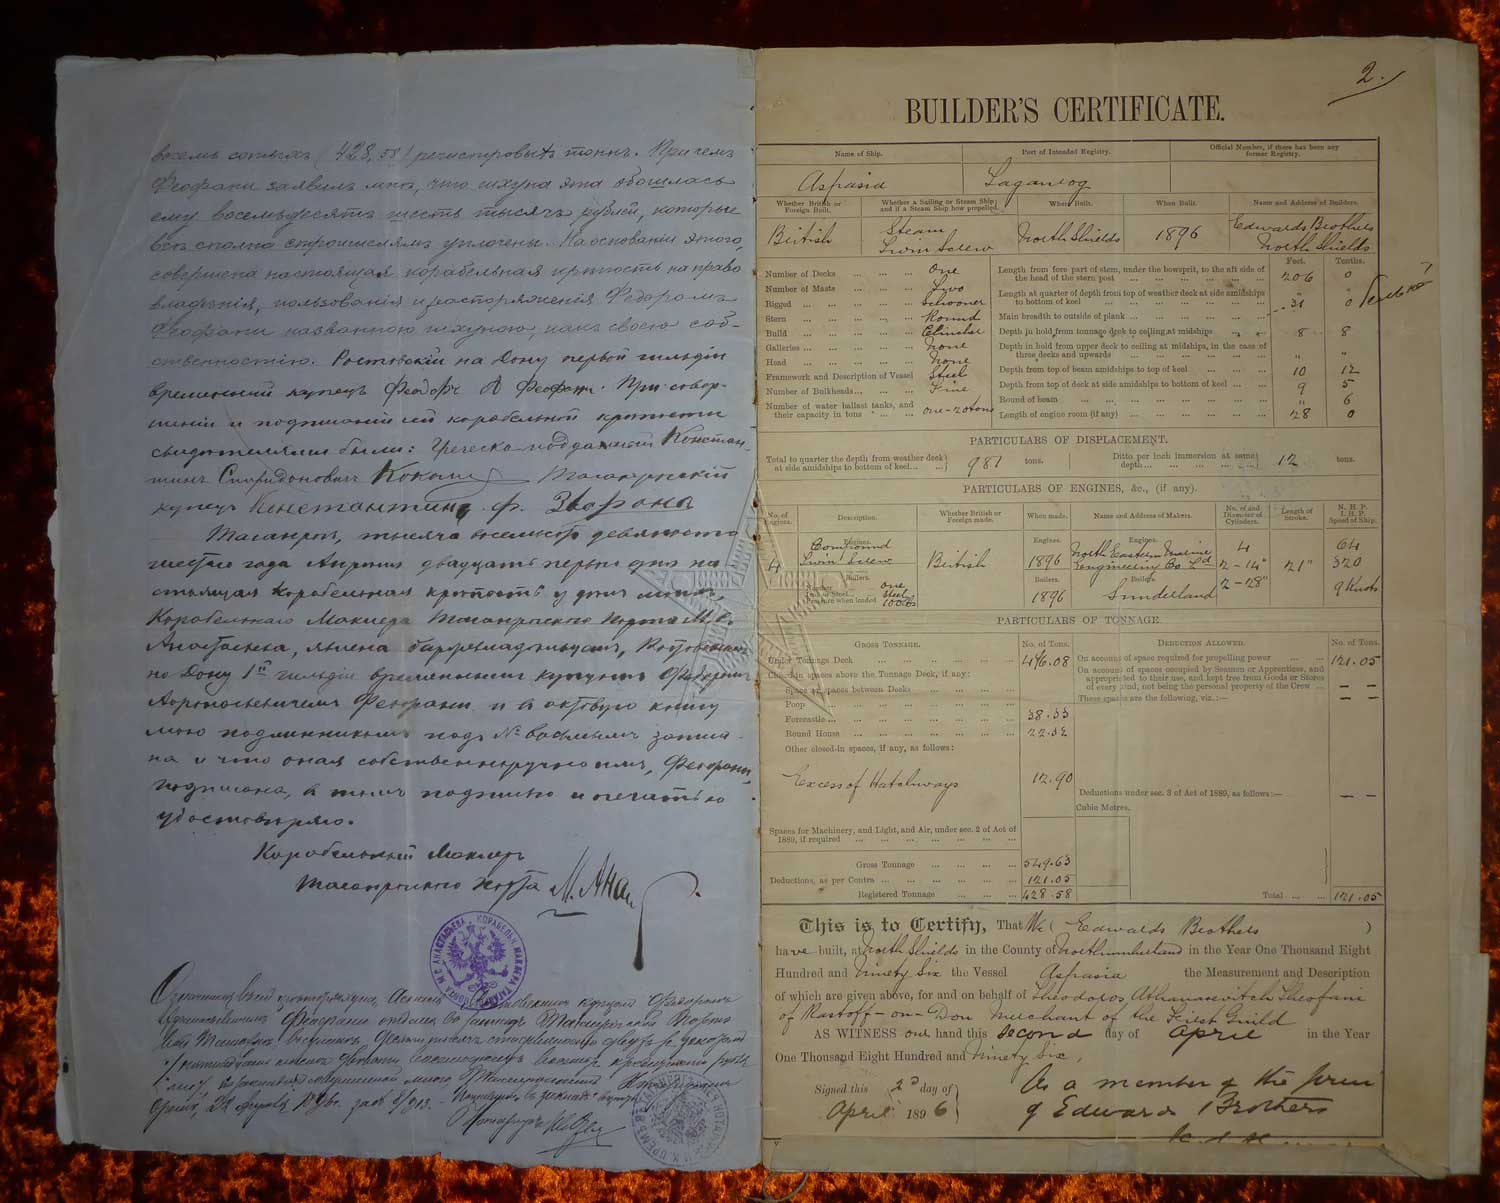 восемь сотыхъ (428,58) регистровыхъ тоннъ. Причемъ
Феофани заявилъ мнѣ, что шхуна эта обошлась
ему восемьдесятъ шесть тысячъ рублей, которые
всѣ сполна строителямъ уплочены. На основаніи этого,
совершена настоящая корабельная крѣпость на право
владѣнія, пользованія и распоряженія Федоромъ
Феофани названною шхуною, какъ своею соб-
ственностію. Ростовскій на Дону первой гильдіи
временный купецъ Феодоръ А Феофани. При совер-
шеніи и подписаніи сей корабельной крѣпости
свидѣтелями были: Греческо-подданный Констан-
тинъ Спиридоновичъ Таганрогскій
купецъ Константинъ Ф.
Таганрогъ, тысяча восемьсотъ девяносто
шестого года Апрѣля двадцать перваго дня на-
стоящая корабельная крѣпость у дѣлъ моихъ,
Корабельнаго Маклера Таганрогскаго Порта М. С.
Анастасьева, явлена Ростовскимъ
на Дону 1й гильдіи временнымъ купцомъ Федоромъ
Феофани и въ актовую книгу
мою подлинникомъ подъ № восьмымъ записа-
на и что оная собственноручно имъ, Феофани,
подписана, въ томъ подписью и печатью
удостовѣряю.
Корабельный Маклеръ
Таганрогскаго Порта М. Ана
М. С. АНАСТАСЬЕВА. КОРАБЕЛЬН. МАКЛЕРА ТАГАН. ПОРТА
2.
BUILDER'S CERTIFICATE.
Name of Ship. Port of Intended Registry. Official Number, if there has been any former Registry.
Aspasia Taganrog
Whether British or Foreign Built. Whether a Sailing or Steam Ship; and if a Steam Ship how propelled. Where Built. When Built. Name and Address of Builders.
British Steam Twin Screw North Shields 1896 Edwards Brothers North Shields
Feet. Tenths.
Number of Decks one
Number of Masts Two
Rigged Schooner
Stern Round
Build Clincher
Galleries None
Head None
Framework and Description of Vessel Steel
Number of Bulkheads Five
Number of water ballast tanks, and their capacity in tons one - 20 tons
Length from fore part of stem, under the bowsprit, to the aft side of the head of the stern post 206 0
Length at quarter of depth from top of weather deck at side amidships to bottom of keel " "
Main breadth to outside of plank 31 0
Depth in hold from tonnage deck to ceiling at midships 8 8
Depth in hold from upper deck to ceiling at midships, in the case of three decks and upwards " "
Depth from top of beam amidships to top of keel 10 12
Depth from top of deck at side amidships to bottom of keel 9 5
Round of beam " 6
Length of engine room (if any) 28 0
PARTICULARS OF DISPLACEMENT.
Total to quarter the depth from weather deck at side amidships to bottom of keel 981 tons. Ditto per inch immersion at same depth 12 tons.
PARTICULARS OF ENGINES, &c., (if any).
No. of Engines. Description. Whether British or Foreign made. When made. Name and Address of Makers. No. of and Diameter of Cylinders. Length of Stroke. N. H. P. I. H. P. Speed of Ship.
Engines. Engines. Engines.
4 Compound Twin Screw British 1896 North Eastern Marine Engineering Co. Ld 4 2 - 14" 2 - 28" 21" 64 320 9 Knots
Boilers. Boilers. Boilers.
Number one
Iron or Steel Steel
Pressure when loaded 100 lbs
1896 Sunderland
PARTICULARS OF TONNAGE.
GROSS TONNAGE. No. of Tons. DEDUCTION ALLOWED. No. of Tons.
Under Tonnage Deck 476.08
Closed-in spaces above the Tonnage Deck, if any:
Space or spaces between Decks
Poop
Forecastle 38.33
Round House 22.32
Other closed-in spaces, if any, as follows:
Excess of Hatchways 12.90
Spaces for Machinery, and Light, and Air, under sec. 2 of Act of 1889, if required
Gross Tonnage 549.63
Deductions, as per Contra 121.05
Registered Tonnage 428.58
On account of space required for propelling power 121.05
On account of spaces occupied by Seamen or Apprentices, and appropriated to their use, and kept free from Goods or Stores of every kind, not being the personal property of the Crew — —
These spaces are the following, viz.:— — —
Deductions under sec. 3 of Act of 1889, as follows:— — —
Cubic Metres.
Total 121.05
This is to Certify, That We (Edwards Brothers)
have built, at North Shields in the County of Northumberland in the Year One Thousand Eight
Hundred and Ninety Six the Vessel Aspasia the Measurement and Description
of which are given above, for and on behalf of Theodoros Athanasevitch Theofani
of Rostoff-on-Don Merchant of the First Guild
AS WITNESS one hand this second day of April in the Year
One Thousand Eight Hundred and Ninety Six,
Signed this 2d day of
April 1896
As a member of the firm
of Edwards Brothers